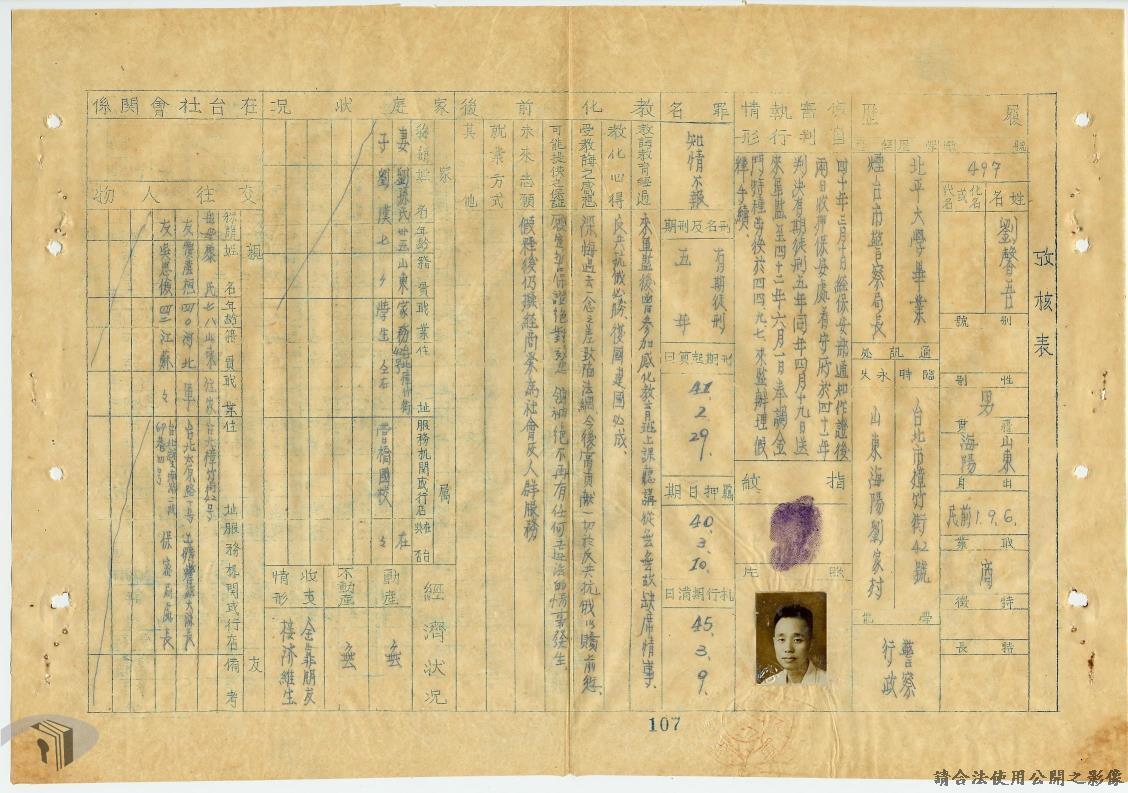 攷核表
履歷
號數
497
姓名
化名或代名
劉馨吾
別號
性別
男
籍貫
山東海陽
出身
民前1.9.6.
職業
商
特徵
特長
學歷經歷
北平大學畢業
煙台市警察局長
通訊處
臨時
永久
台北市樟竹街42號
山東海陽劉家村
警察行政
偵查審判執行情形
四十年三月十日經保安部通知作證後
兩日收押保安處看守所於四十一年
判決有期徒刑五年同年四月十九日送
來軍監至四十三年六月一日奉調金
門特種勞後於四四、九、七、來監辦理假
釋手續.
指紋
照片
罪名
知情不報
刑名及刑期
有期徒刑
五年
刑期起算日
41.2.29.
羈押日期
40.3.10.
執行期滿日
45.3.9.
教化
前
後
教誨教育經過
來軍監後曾參加感化教育班上課聽講從無無故缺席情事.
教化心得
反共抗俄必勝、復國建國必成.
受教誨之感想
深悔過去一念之差致陷法網今後當貢獻一切於反共抗俄以贖前愆.
可能提供之保證
絕對
領袖絕不再有任何違法的情事發生.
未來志願
假釋後仍操經商業為社會及人群服務
就業方式
其他
家庭狀況
家屬
稱謂
姓名
年齡
籍貫
職業
住址
服務機關或行店
在台
妻 劉孫氏 卅五 山東 家務
子 劉漢 七 〃 學生 〃 右 國校 〃
經濟狀況
動產
無
不動產
無
收支情形
全靠朋友
接濟維生
在台社會關係
交往人物
親友
稱謂
姓名
年齡
籍貫
職業
住址
服務機關或行在
備考
民 七八 山東 台北樟竹街42號
友 四〇 河北 軍 台北太原路
友 四二 江蘇 〃 保密局處長
107
請合法使用公開之影像